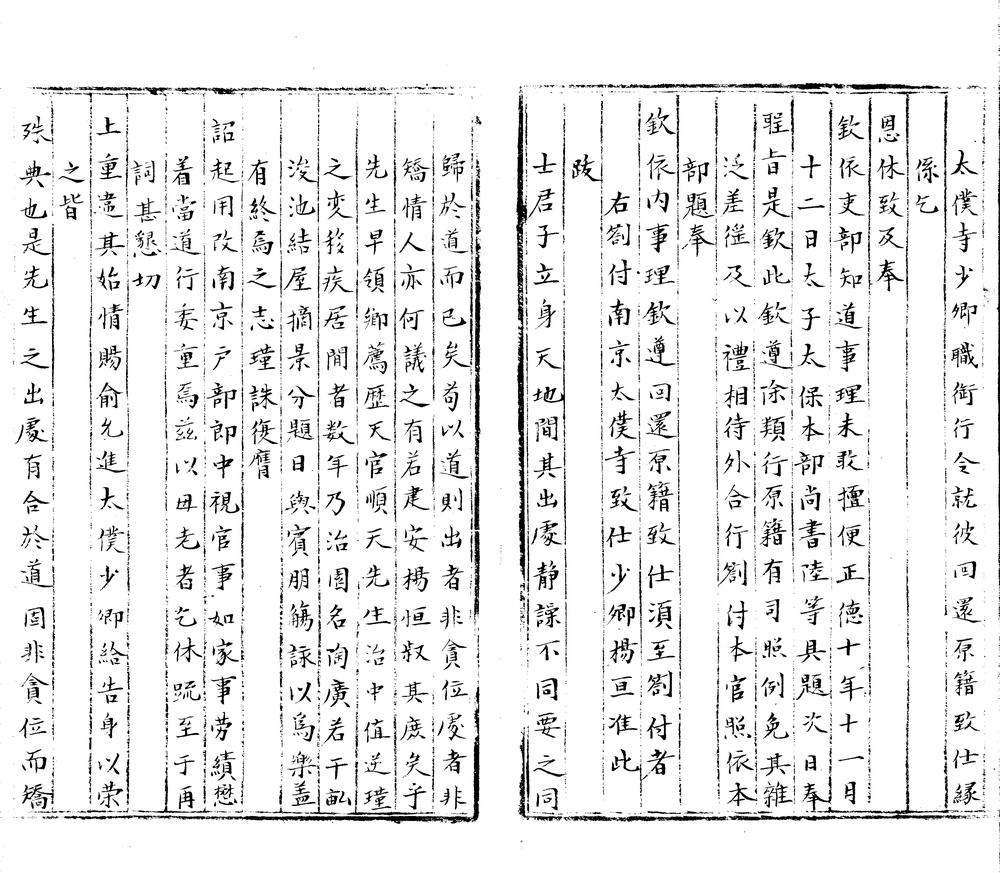 太僕寺少卿職銜行令就彼回還原籍致仕緣
係乞
恩休致及奉
欽依吏部知道事理未敢擅便正德十一年十一月
十二日太子太保本部尚書陸等具題次日奉
聖旨是欽此欽遵除類行原籍有司照例免其雜
泛差徭及以禮相待外合行劄付本官照依本
部題奉
欽依內事理欽遵回還原籍致仕須至劄付者
右劄付南京太僕寺致仕少卿楊亘准此
跋
士君子立身天地間其出處靜譟不同要之同
歸於道而已矣苟以道則出者非貪位處者非
矯情人亦何議之有若建安楊恒叔其庶矣乎
先生早領鄉薦歷天官順天先生治中值逆瑾
之变移疾居閒者数年乃治圃名陶廣若干畝
浚池結屋摘景分題日與賓朋觴詠以為樂盖
有終焉之志瑾誅復膺
詔起用改南京户部郎中視官事如家事劳績懋
着當道行委重焉茲以母老者乞休䟽至于再
詞甚懇切
上重違其始情賜俞允進太僕少卿給告身以荣
之皆
殊典也是先生之出處有合於道固非貪位而矯